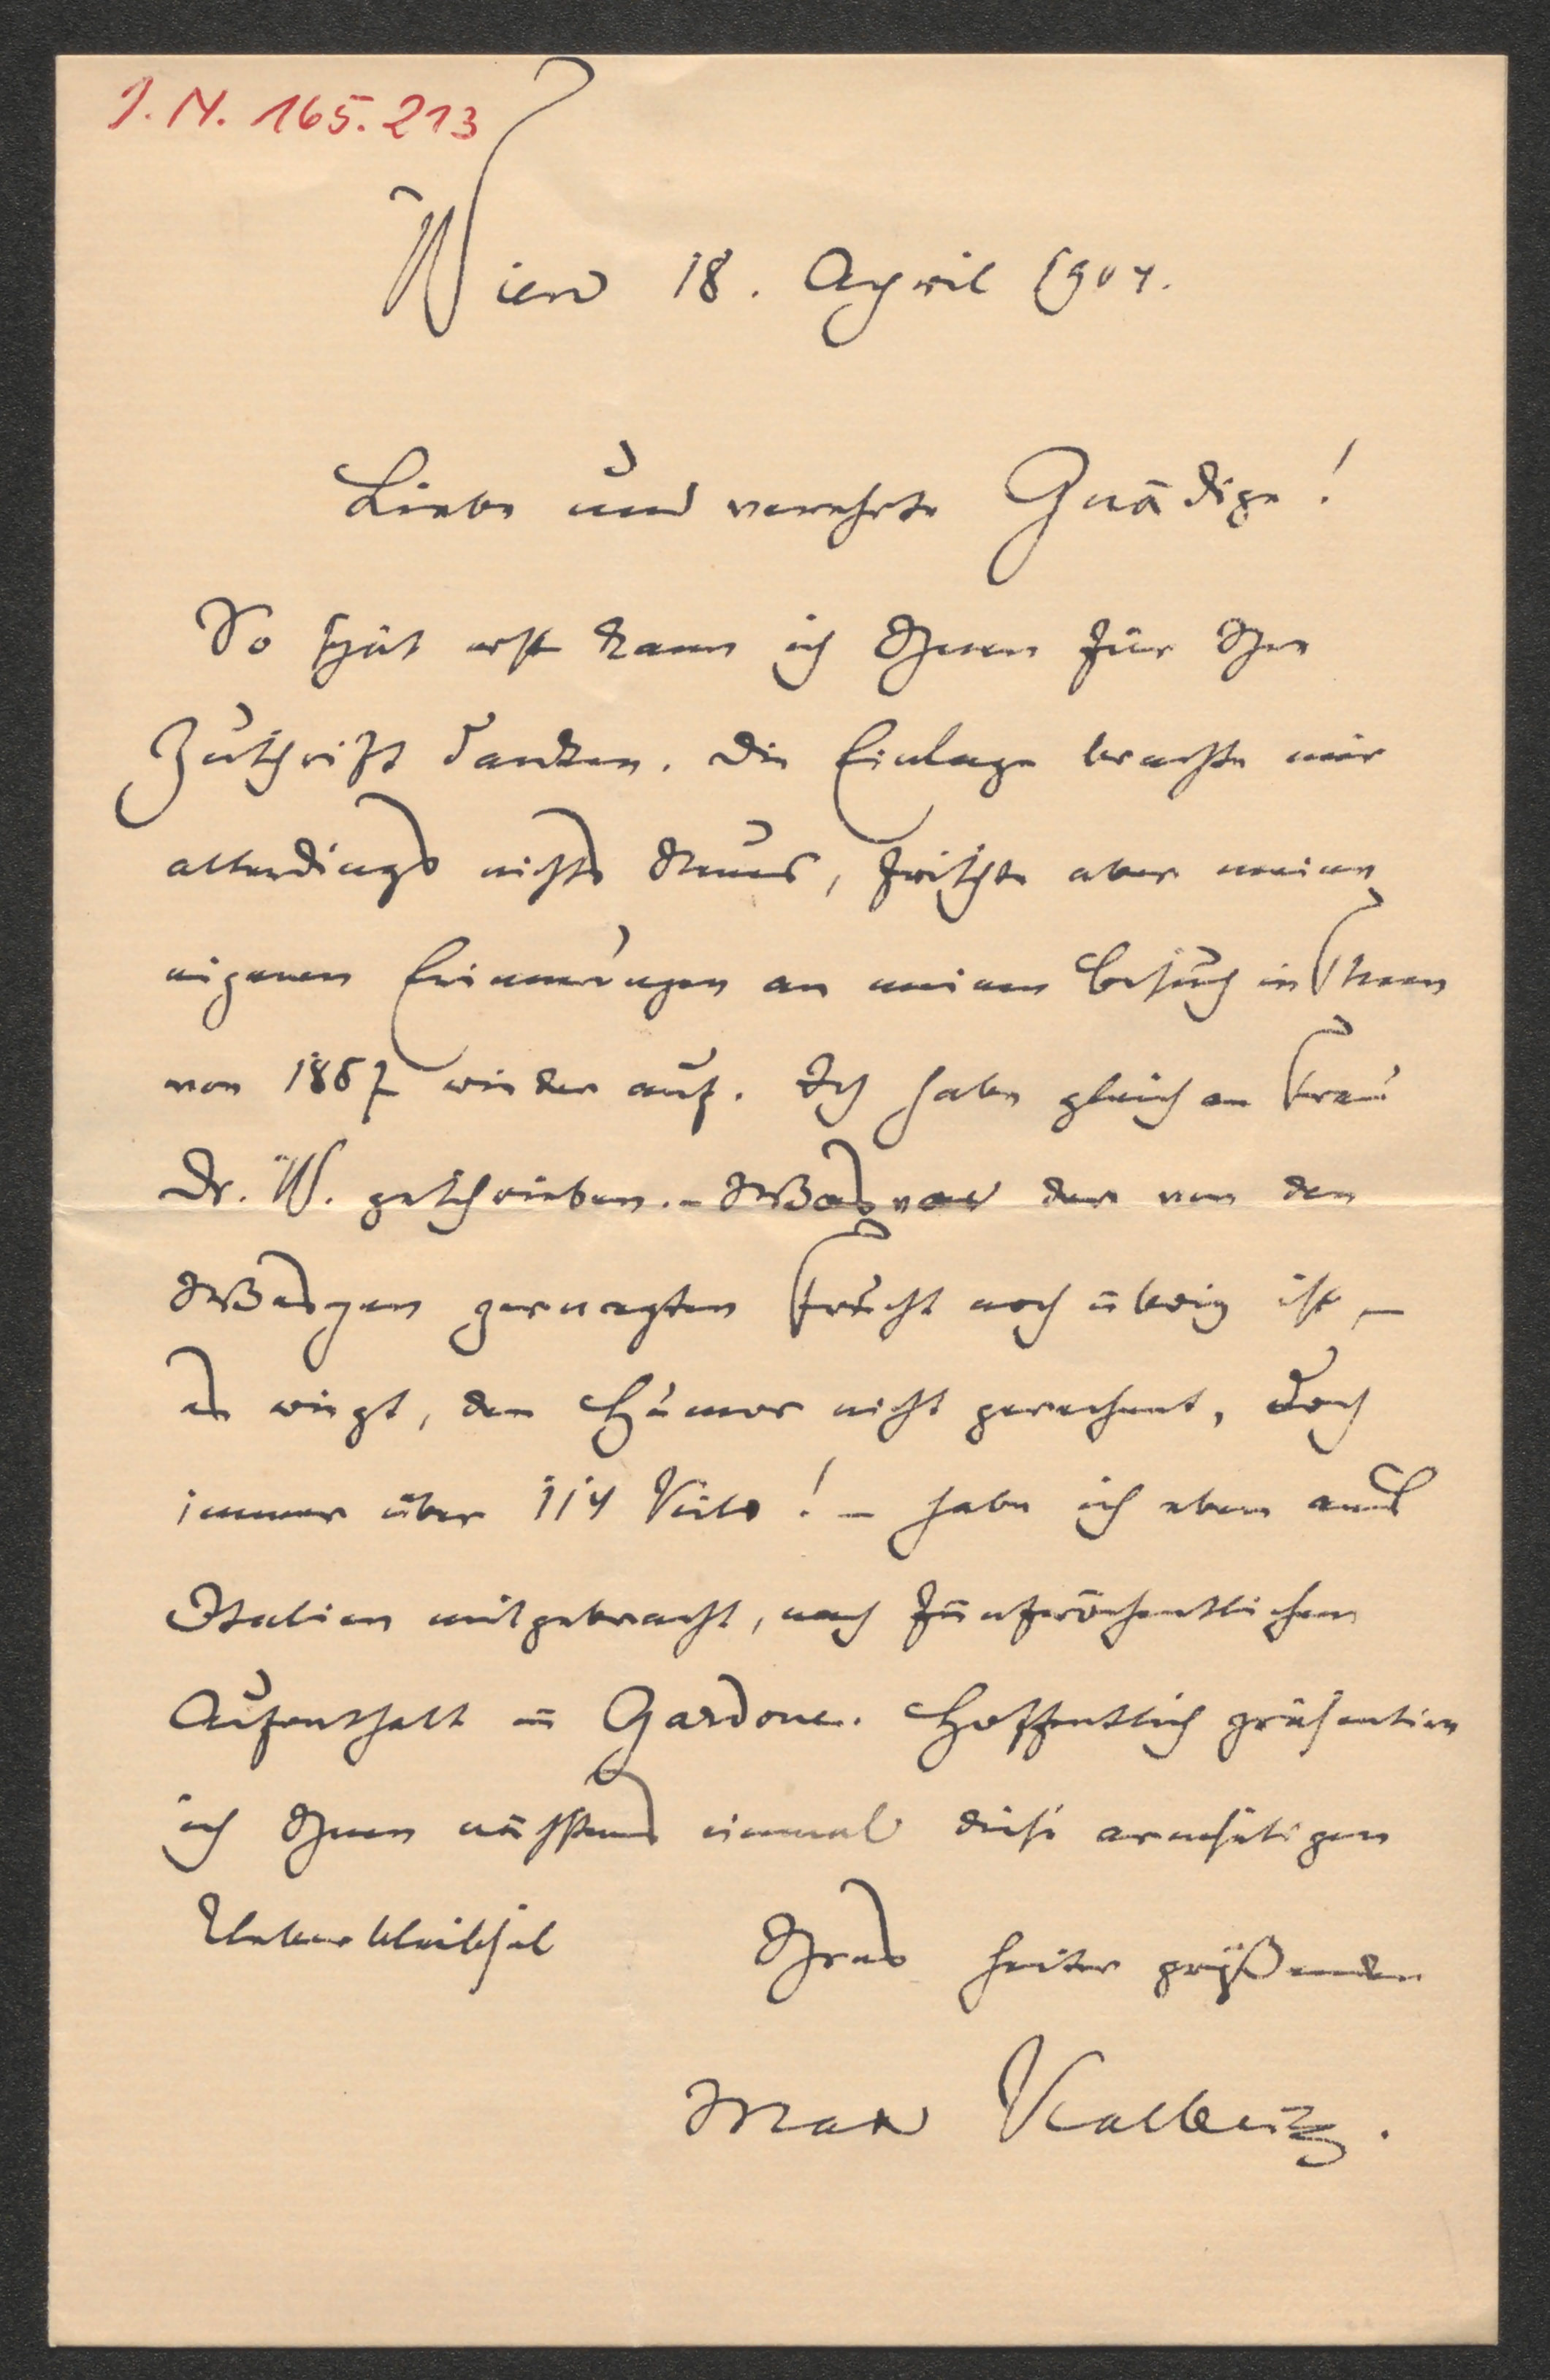 J. N. 165.213
Wien 18. April 1904.
Liebe und verehrte Gnädige!
So spät erst kann ich Ihnen für Ihre
Zuschrift danken. Die Einlage brachte mir
allerdings nichts Neues, frischte aber meine
eigenen Erinnerungen an meinen Besuch in
von 1887 wieder auf. Ich habe gleich an Frau
Dr. W. geschrieben. – Was von der von den
Wespen genagten Frucht noch übrig ist, –
es wiegt, den Humor nicht gerechnet, doch
immer über 114 Kilo! – habe ich eben aus
Italien mitgebracht, nach fünfwöchentlichem
Aufenthalt in Gardone. Hoffentlich präsentiere
ich Ihnen nächstens einmal diese armseligen
Ueberbleibsel Ihres heiter grüßenden
Max Kalbeck.